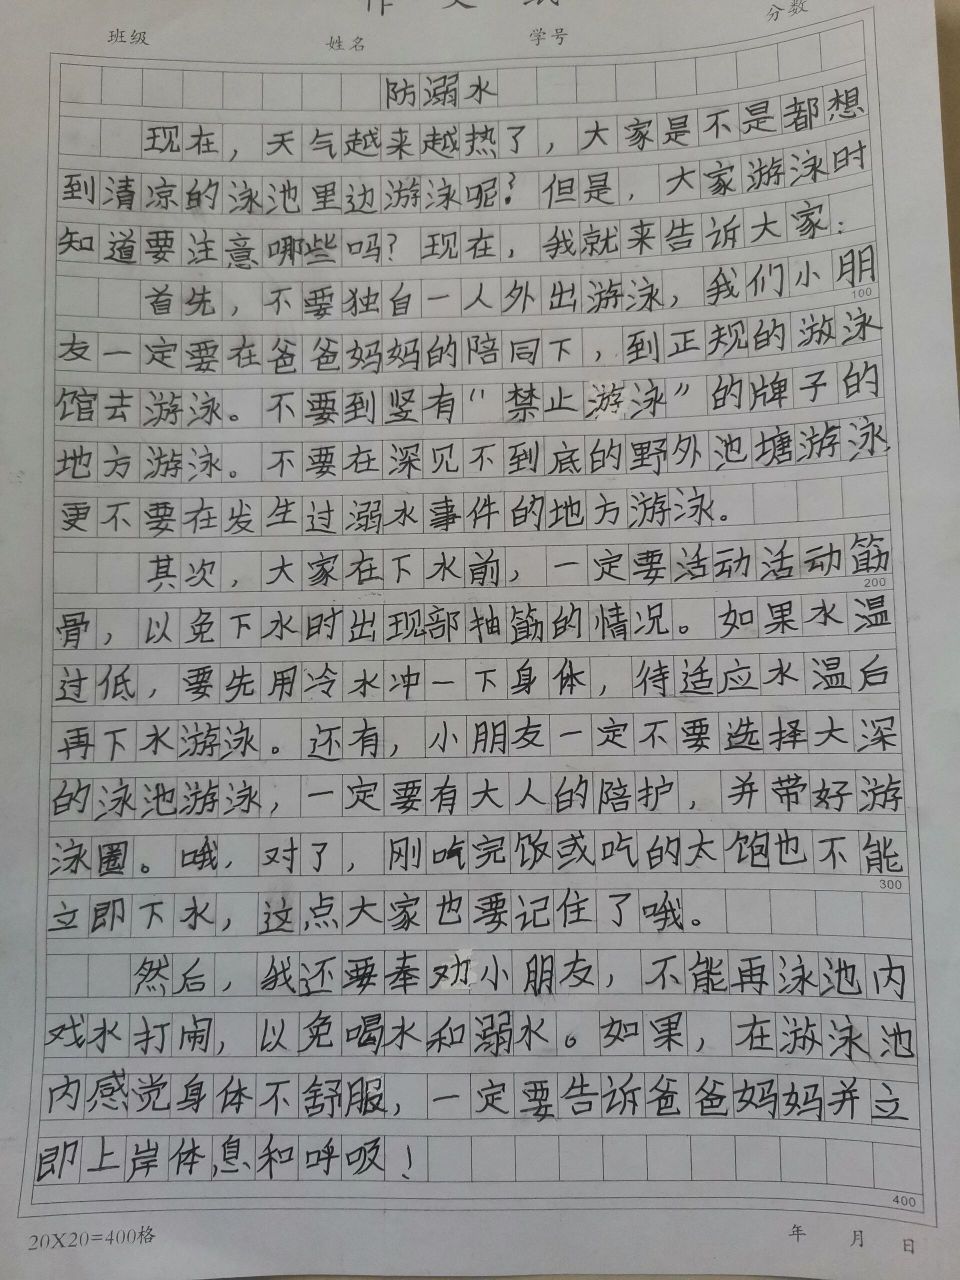 作文纸
班级 姓名 学号 分数
防溺水
现在，天气越来越热了，大家是不是都想
到清凉的泳池里边游泳呢？但是，大家游泳时
知道要注意哪些吗？现在，我就来告诉大家：
首先，不要独自一人外出游泳，我们小朋
100
友一定要在爸爸妈妈的陪同下，到正规的游泳
馆去游泳。不要到竖有“禁止游泳”的牌子的
地方游泳。不要在深见不到底的野外池塘游泳，
更不要在发生过溺水事件的地方游泳。
其次，大家在下水前，一定要活动活动筋
200
骨，以免下水时出现部抽筋的情况。如果水温
过低，要先用冷水冲一下身体，待适应水温后
再下水游泳。还有，小朋友一定不要选择大深
的泳池游泳，一定要有大人的陪护，并带好游
泳圈。哦，对了，刚吃完饭或吃的太饱也不能
300
立即下水，这点大家也要记住了哦。
然后，我还要奉劝小朋友，不能再泳池内
戏水打闹，以免喝水和溺水。如果，在游泳池
内感觉身体不舒服，一定要告诉爸爸妈妈并立
即上岸体息和呼吸！
400
20X20=400格 年 月 日